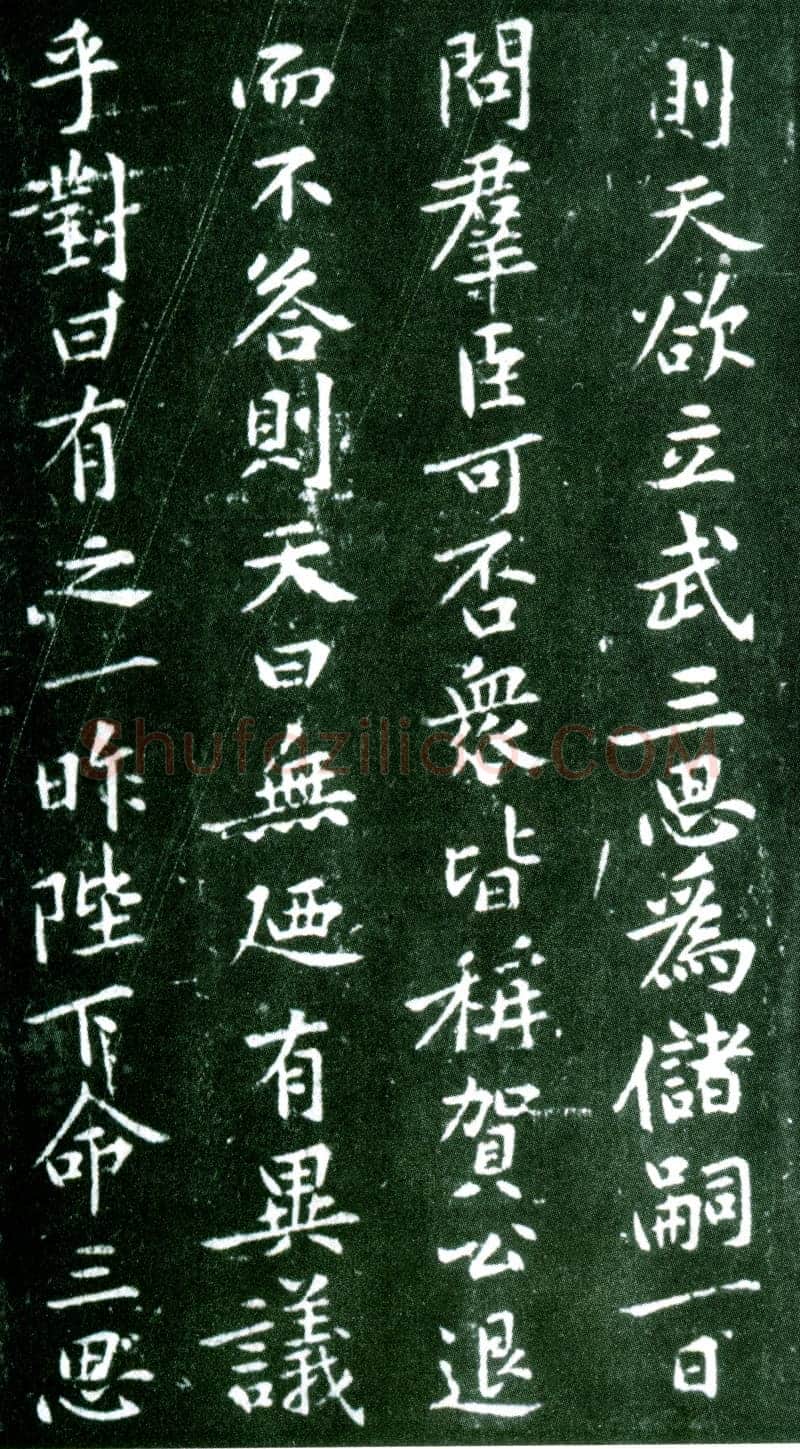 則天欲立武三思爲儲嗣一日
問羣臣可否衆皆稱賀公退
而不答則天曰無廼有異議
乎對曰有之一昨陛下命三思
Shufaziliao.COM